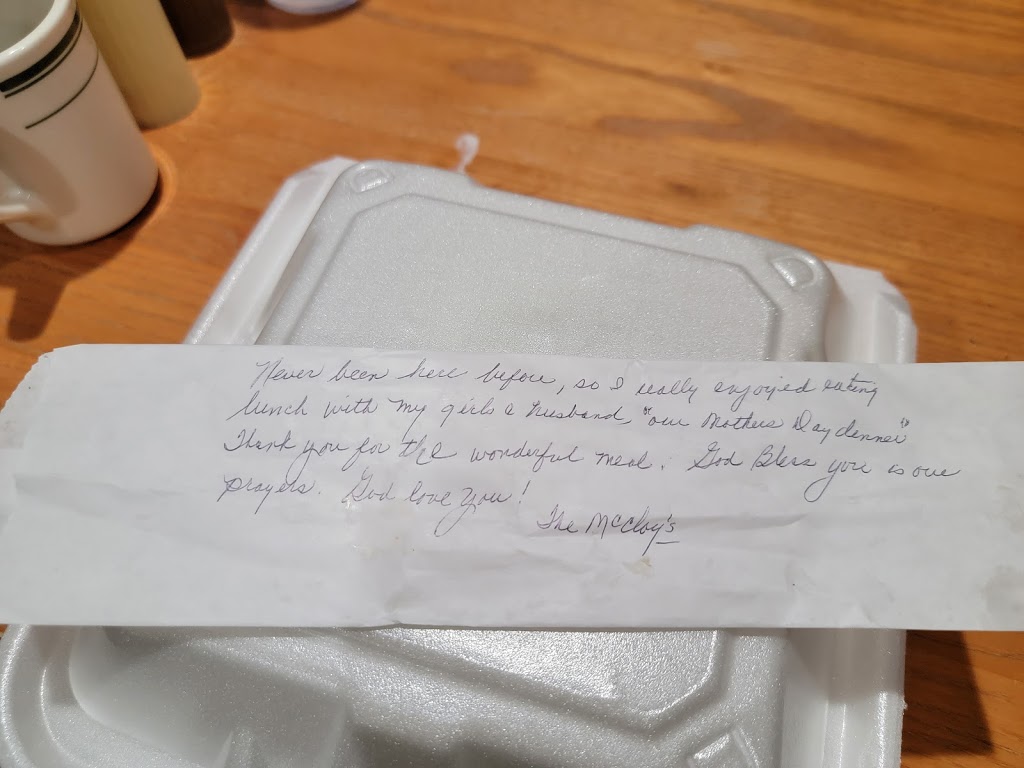 Never been here before, so I really enjoyed eating
lunch with my girls & husband, "our Mothers Day dinner"
Thank you for the wonderful meal. God Bless you is our
prayers. God love you!
The McCloy's